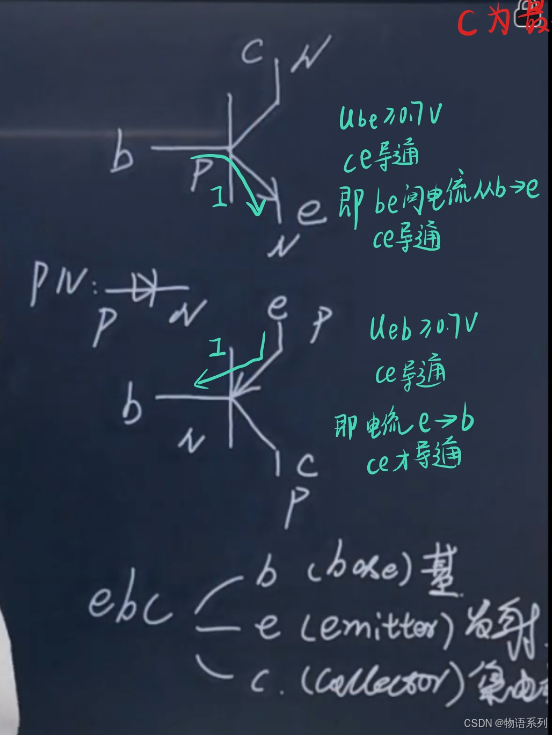 C为最
c N
b P
I e
N
Ube≥0.7V
ce导通
即be间电流从b→e
ce导通
PN:
P N
e P
I
b
N
c
P
Ueb≥0.7V
ce导通
即电流e→b
ce才导通
ebc
b (base) 基
e (emitter) 发射
c. (collector) 集电
CSDN @物语系列